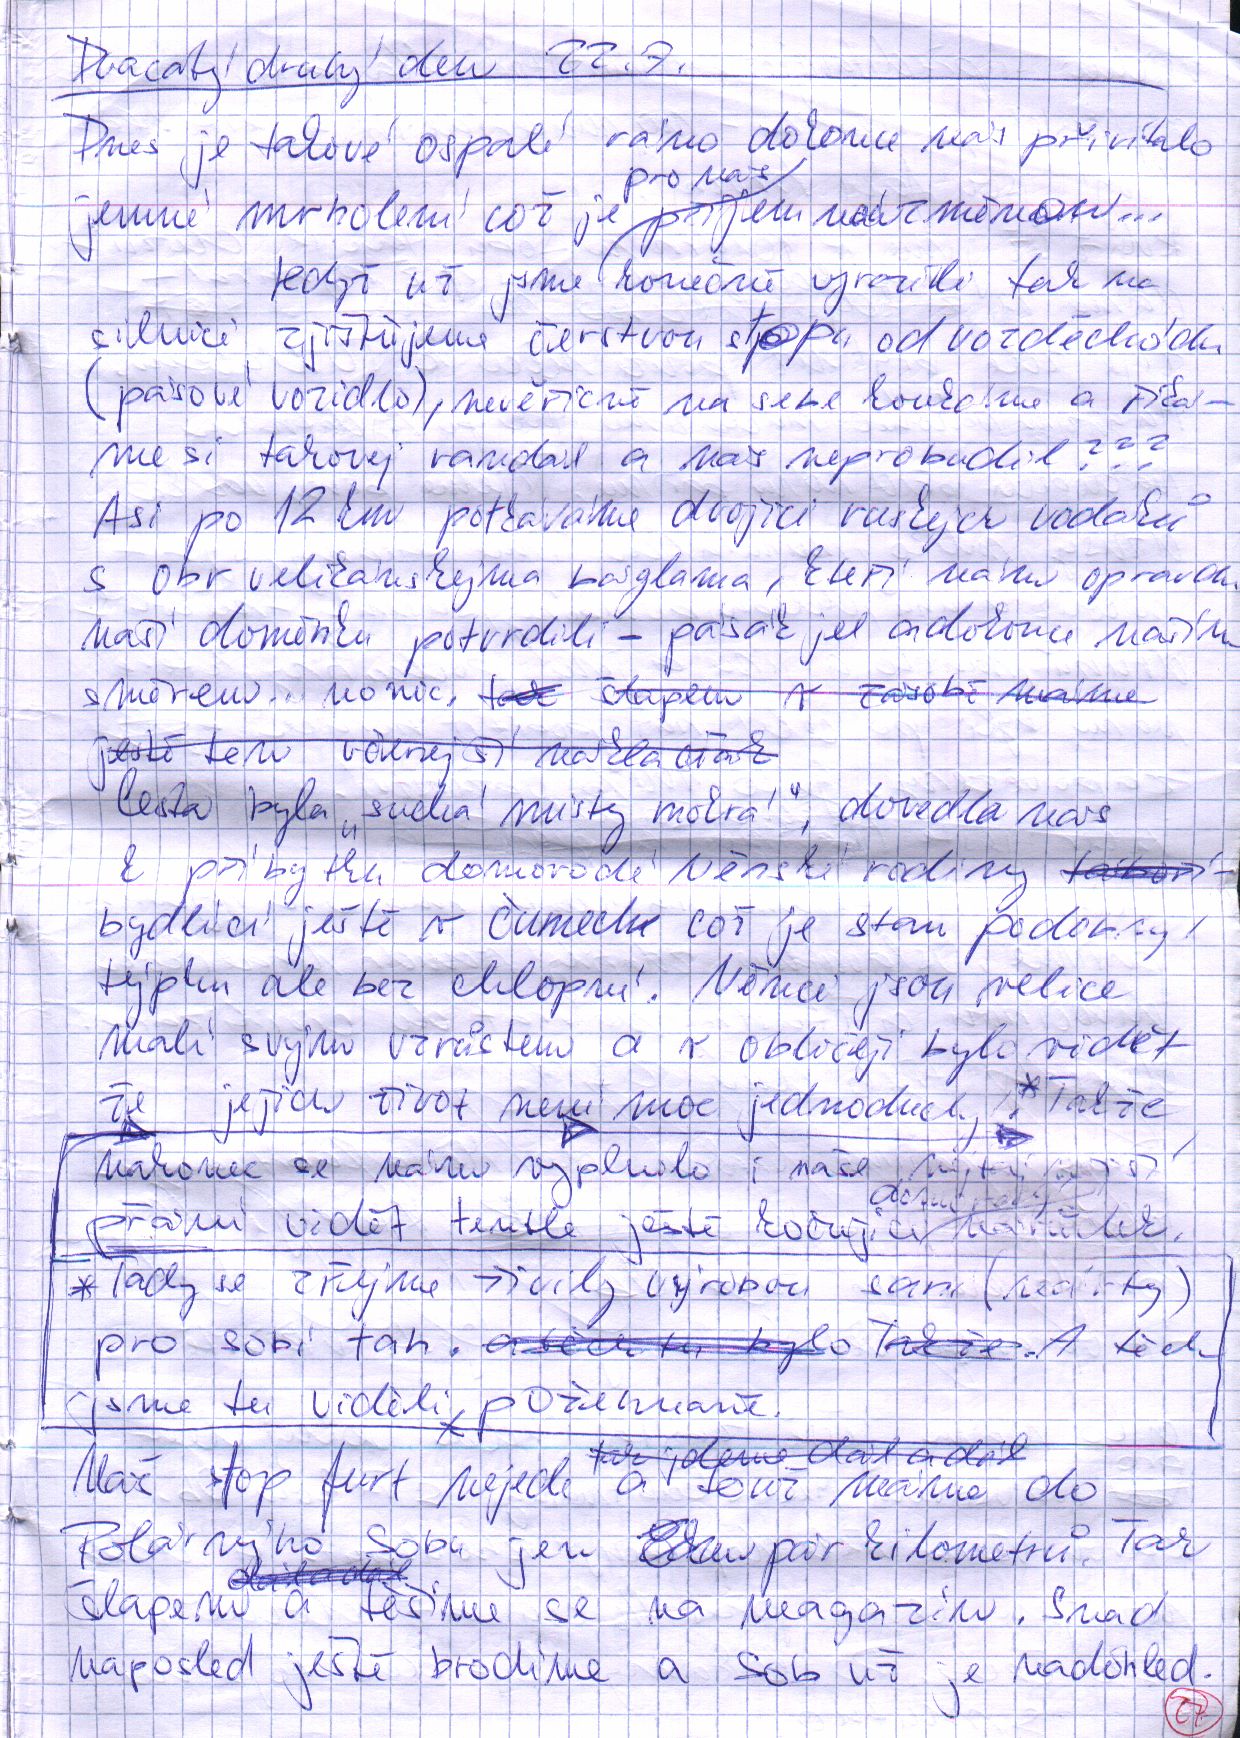 Dvacatý druhý den 22.7.
Dnes je takové ospalé ráno dokonce nás přivítalo
pro nás
jemné mrholení což je příjemná změna...
Když už jsme konečně vyrazili tak na
silnici zjišťujeme čerstvou stopu od vozděchodu
(pásové vozidlo), nevěřícně na sebe koukáme a říká-
me si takovej randál a nás neprobudil???
Asi po 12 km potkáváme dvojici ruskejch vodáků
s obr veličanskejma báglama, kteří nám opravdu
naší doměnku potvrdili - pásák jel a dokonce naším
směrem.. no nic. tak šlapem v zásobě máme
ještě ten včerejší
Cesta byla „suchá místy mokrá", dovedla nás
k příbytku domorodé Něnské rodiny
bydlící ještě v čumech což je stan podobný
týpku ale bez chlopní. Něnci jsou velice
malí svým vzrůstem a v obličeji bylo vidět
že jejich život není moc jednoduch, * Takže
nakonec se nám vyplnilo i naše
přání vidět tenhle ještě kočující
* Tady se zřejmě živily výrobou saní (nárty)
pro sobí tah. Takže. A těch
jsme tu viděli, požehnaně.
tak jdeme dál a dál
Náš stop furt nejede a touž máme do
Polárnýho Sobu jen pár kilometrů. Tak
dál a dál
šlapem a těšíme se na magazin. Snad
naposled ještě brodíme a Sob už je nadohled.
27